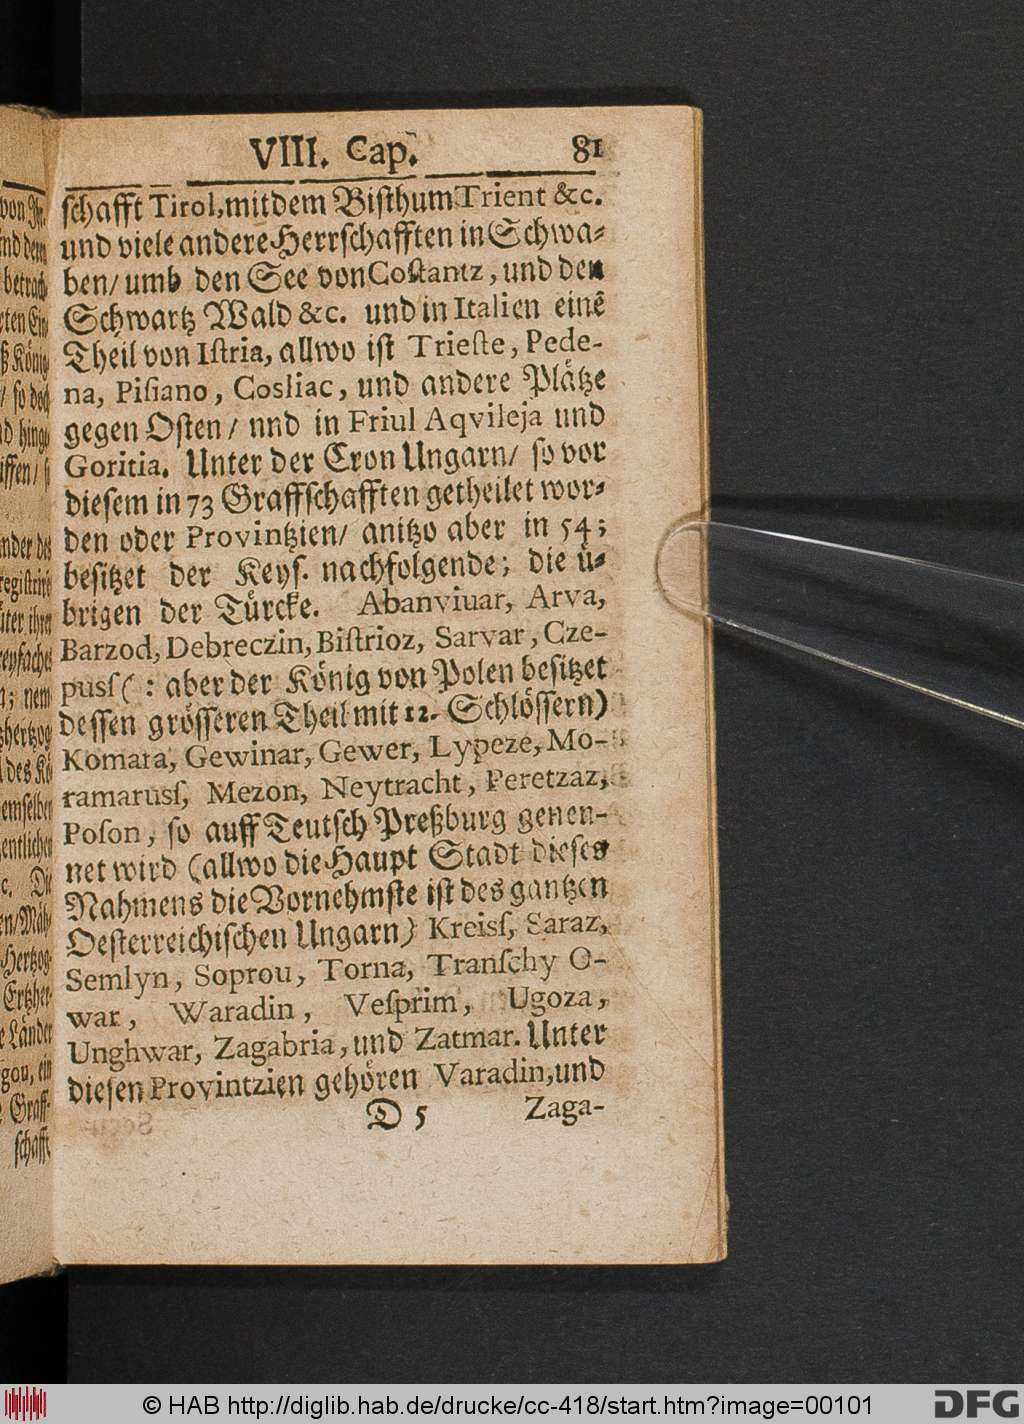 VIII. Cap. 81
schafft Tirol, mit dem Bisthum Trient &c.
und viele andere Herrschafften in Schwa-
ben/ umb den See von Costantz, und den
Schwartz Wald &c. und in Italien einē
Theil von Istria, allwo ist Trieste, Pede-
na, Pisiano, Cosliac, und andere Plätze
gegen Osten/ nnd in Friul Aqvileja und
Goritia. Unter der Cron Ungarn/ so vor
diesem in 73 Graffschafften getheilet wor-
den oder Provintzien/ anitzo aber in 54;
besitzet der Keys. nachfolgende; die ü-
brigen der Türcke. Abanviuar, Arva,
Barzod, Debreczin, Bistrioz, Sarvar, Cze-
pusſ(: aber der König von Polen besitzet
dessen grösseren Theil mit 12. Schlössern)
Komara, Gewinar, Gewer, Lypeze, Mo-
ramarusſ, Mezon, Neytracht, Peretzaz,
Poson, so auff Teutsch Preßburg genen-
net wird (allwo die Haupt Stadt dieses
Nahmens die Vornehmste ist des gantzen
Oesterreichischen Ungarn) Kreisſ, Saraz,
Semlyn, Soprou, Torna, Transchy O-
war, Waradin, Vesprim, Ugoza,
Unghwar, Zagabria, und Zatmar. Unter
diesen Provintzien gehören Varadin, und
D 5 Zaga-
von
betrach
König
so doch
nem
des Kö
emselben
entlichen
Die
Hertzog-
Ertzher-
Länder
gou, ein
Graff-
schafft
© HAB http://diglib.hab.de/drucke/cc-418/start.htm?image=00101
DFG